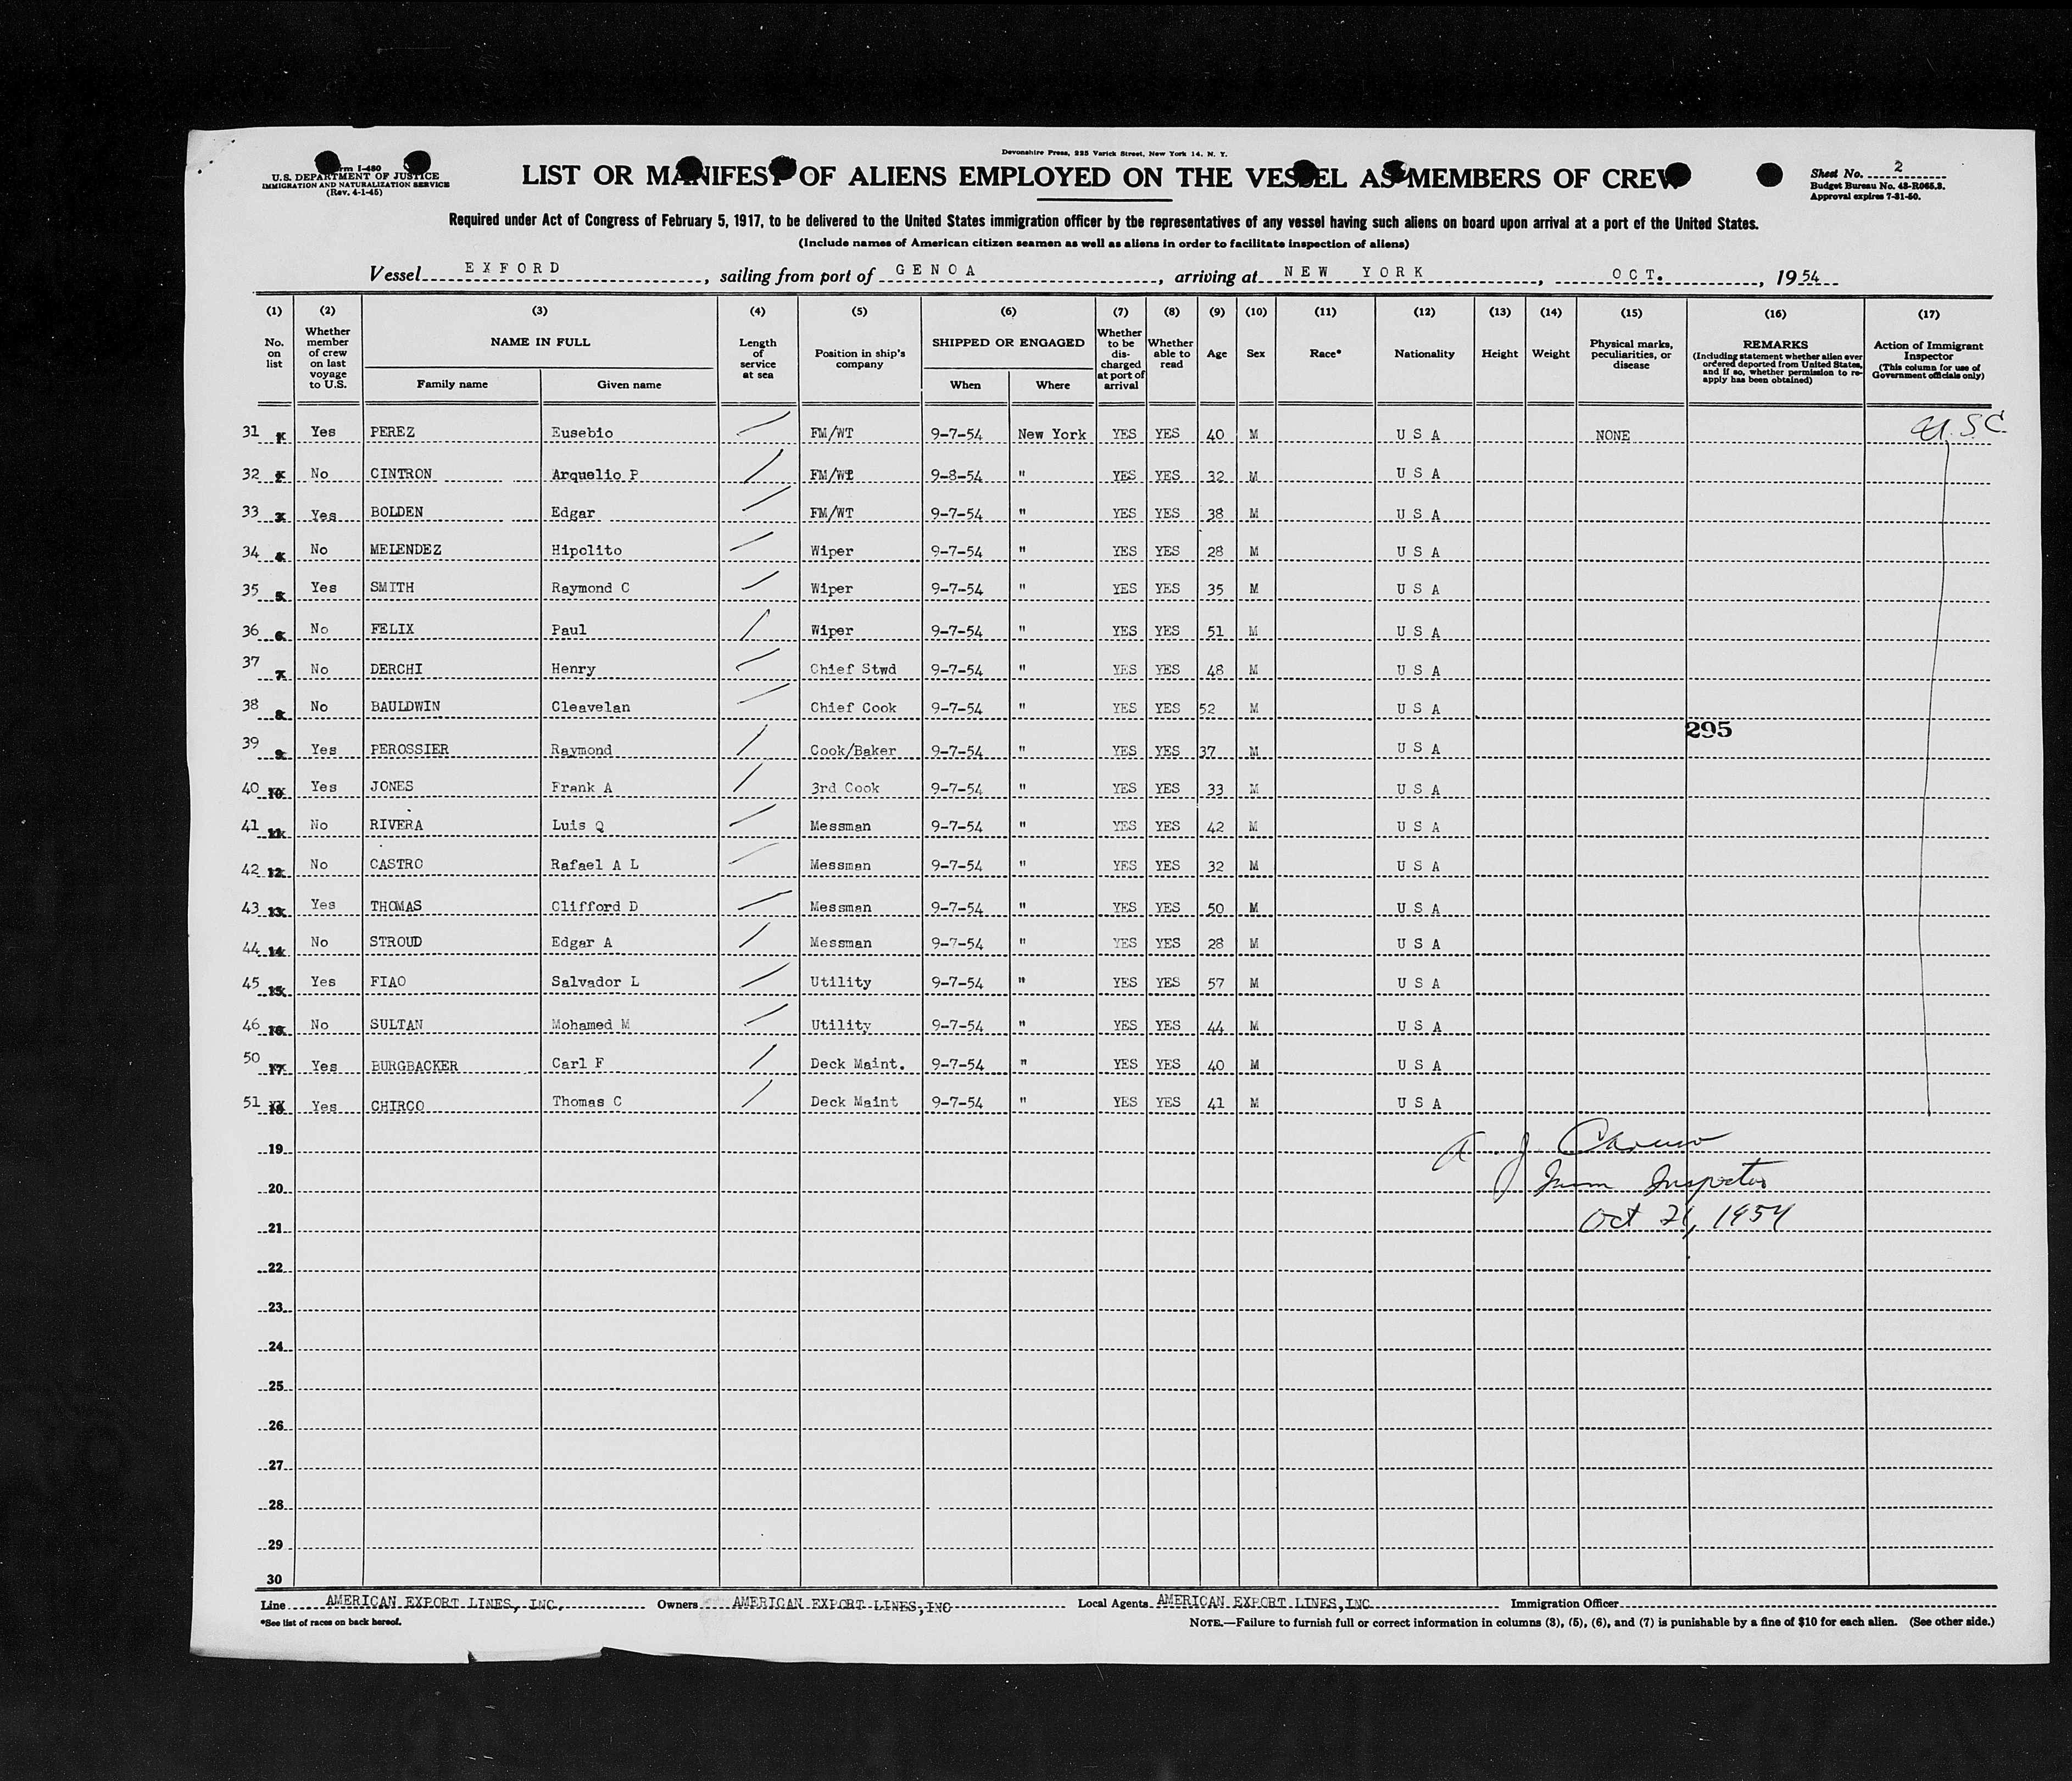 Devonshire Press, 225 Varick Street, New York 14, N. Y.
Form I-480
U.S. DEPARTMENT OF JUSTICE
IMMIGRATION AND NATURALIZATION SERVICE
(Rev. 4-1-45)
LIST OR MANIFEST OF ALIENS EMPLOYED ON THE VESSEL AS MEMBERS OF CREW
Sheet No. 2
Budget Bureau No. 43-R065.3.
Approval expires 7-31-50.
Required under Act of Congress of February 5, 1917, to be delivered to the United States immigration officer by the representatives of any vessel having such aliens on board upon arrival at a port of the United States.
(Include names of American citizen seamen as well as aliens in order to facilitate inspection of aliens)
Vessel EXFORD, sailing from port of GENOA, arriving at NEW YORK, OCT., 1954
(1) (2) (3) (4) (5) (6) (7) (8) (9) (10) (11) (12) (13) (14) (15) (16) (17)
No. on list
Whether member of crew on last voyage to U.S.
NAME IN FULL
Family name Given name
Length of service at sea
Position in ship's company
SHIPPED OR ENGAGED
When Where
Whether to be discharged at port of arrival
Whether able to read
Age Sex Race* Nationality Height Weight
Physical marks, peculiarities, or disease
REMARKS
(Including statement whether alien ever ordered deported from United States, and if so, whether permission to reapply has been obtained)
Action of Immigrant Inspector
(This column for use of Government officials only)
31 Yes PEREZ Eusebio FM/WT 9-7-54 New York YES YES 40 M U S A NONE U.S.C.
32 No CINTRON Arquelio P FM/WT 9-8-54 " YES YES 32 M U S A
33 Yes BOLDEN Edgar FM/WT 9-7-54 " YES YES 38 M U S A
34 No MELENDEZ Hipolito Wiper 9-7-54 " YES YES 28 M U S A
35 Yes SMITH Raymond C Wiper 9-7-54 " YES YES 35 M U S A
36 No FELIX Paul Wiper 9-7-54 " YES YES 51 M U S A
37 No DERCHI Henry Chief Stwd 9-7-54 " YES YES 48 M U S A
38 No BAULDWIN Cleavelan Chief Cook 9-7-54 " YES YES 52 M U S A
295
39 Yes PEROSSIER Raymond Cook/Baker 9-7-54 " YES YES 37 M U S A
40 Yes JONES Frank A 3rd Cook 9-7-54 " YES YES 33 M U S A
41 No RIVERA Luis Q Messman 9-7-54 " YES YES 42 M U S A
42 No CASTRO Rafael A L Messman 9-7-54 " YES YES 32 M U S A
43 Yes THOMAS Clifford D Messman 9-7-54 " YES YES 50 M U S A
44 No STROUD Edgar A Messman 9-7-54 " YES YES 28 M U S A
45 Yes FIAO Salvador L Utility 9-7-54 " YES YES 57 M U S A
46 No SULTAN Mohamed M Utility 9-7-54 " YES YES 44 M U S A
50 Yes BURGBACKER Carl F Deck Maint. 9-7-54 " YES YES 40 M U S A
51 Yes CHIRCO Thomas C Deck Maint 9-7-54 " YES YES 41 M U S A
19 A J Caruso
20 Imm Inspector
21 Oct 21, 1954
22
23
24
25
26
27
28
29
30
Line AMERICAN EXPORT LINES, INC. Owners AMERICAN EXPORT LINES, INC Local Agents AMERICAN EXPORT LINES, INC Immigration Officer
*See list of races on back hereof.
NOTE.—Failure to furnish full or correct information in columns (3), (5), (6), and (7) is punishable by a fine of $10 for each alien. (See other side.)